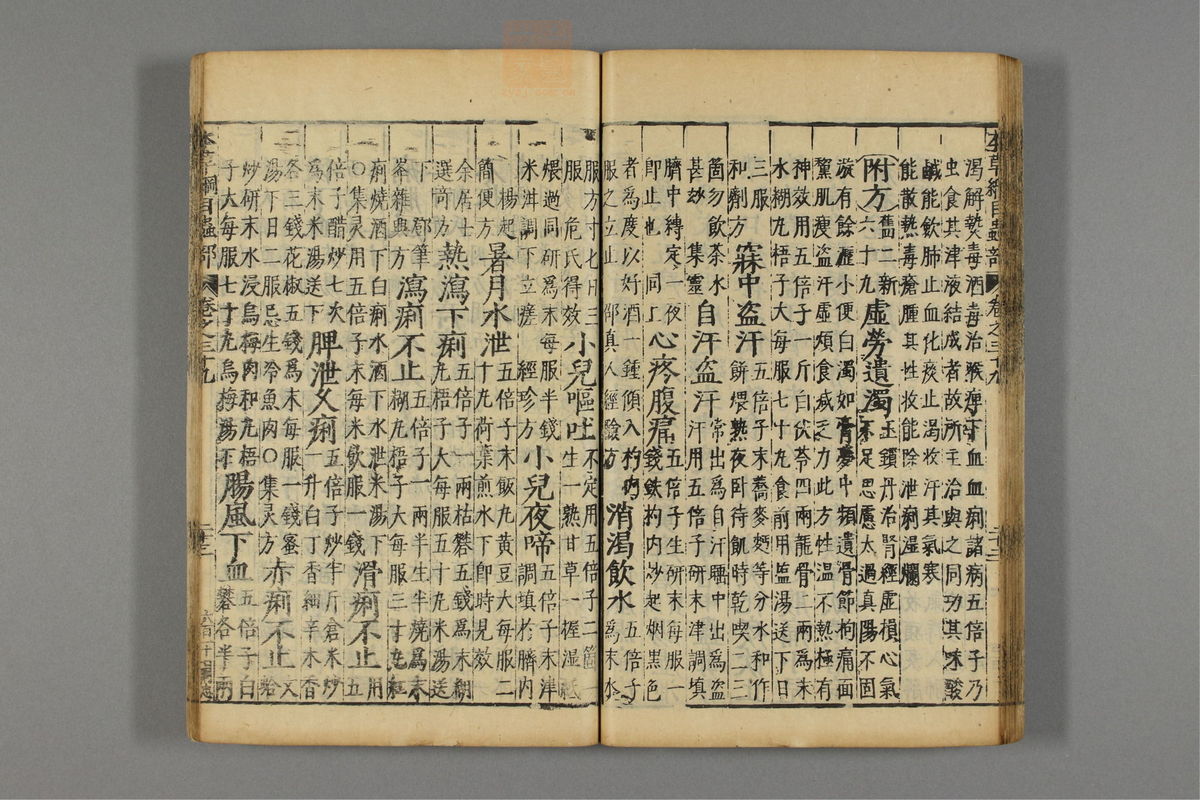 本草綱目蟲部 卷之三十九 二十三
渴解熱毒酒毒治喉痺下血血痢諸病五倍子乃
虫食其津液結成者故所主治與之同功其味酸
鹹能斂肺止血化痰止渴收汗其氣寒
能散熱毒瘡腫其性收能除泄痢湿爛
附方舊二新六十九虛勞遺濁玉鎖丹治腎經虛損心氣不足思慮太過真陽不固
漩有餘瀝小便白濁如膏夢中頻遺骨節拘痛面
黧肌瘦盜汗虛煩食減乏力此方性温不熱極有
神效用五倍子一斤白茯苓四兩龍骨二兩為末
水糊丸梧子大每服七十丸食前用盐湯送下日
三服和劑方寐中盜汗五倍子末蕎麥麪等分水和作餅煨熟夜卧待飢時乾喫二三
箇勿飲茶水甚妙集靈自汗盜汗常出為自汗睡中出為盜汗用五倍子研末津調填
臍中縛定一夜即止也同上心疼腹痛五倍子生研末每服一錢鉄杓内炒起烟黑色
者為度以好酒一鍾傾入杓内服之立止邵真人經驗方消渴飲水五倍子為末水
服方寸匕日三服危氏得效小兒嘔吐不定用五倍子二箇一生一熟甘草一握湿紙
煨過同研為末每服半錢米泔調下立瘥經珍方小兒夜啼五倍子末津調填於臍内
楊起簡便方暑月水泄五倍子末飯丸黄豆大每服二十丸荷葉煎水下即時見效
余居士選竒方熱瀉下痢五倍子一兩枯礬五錢為末糊丸梧子大每服五十丸米湯送
下鄧筆峯雜興方瀉痢不止五倍子一兩半生半燒為末糊丸梧子大每服三十丸紅
痢燒酒下白痢水酒下水泄米湯下○集灵用五倍子末每米飲服一錢滑痢不止用五
倍子醋炒七次為末米湯送下脾泄久痢五倍子炒半斤倉米炒一升白丁香細辛木香
各三錢花椒五錢為末每服一錢蜜湯下日二服忌生冷魚肉○集灵方赤痢不止文蛤
炒研末水浸烏梅肉和丸梧子大每服七十丸烏梅湯下腸風下血五倍子白礬各半兩
本草綱目蟲部 卷之三十九 二十三